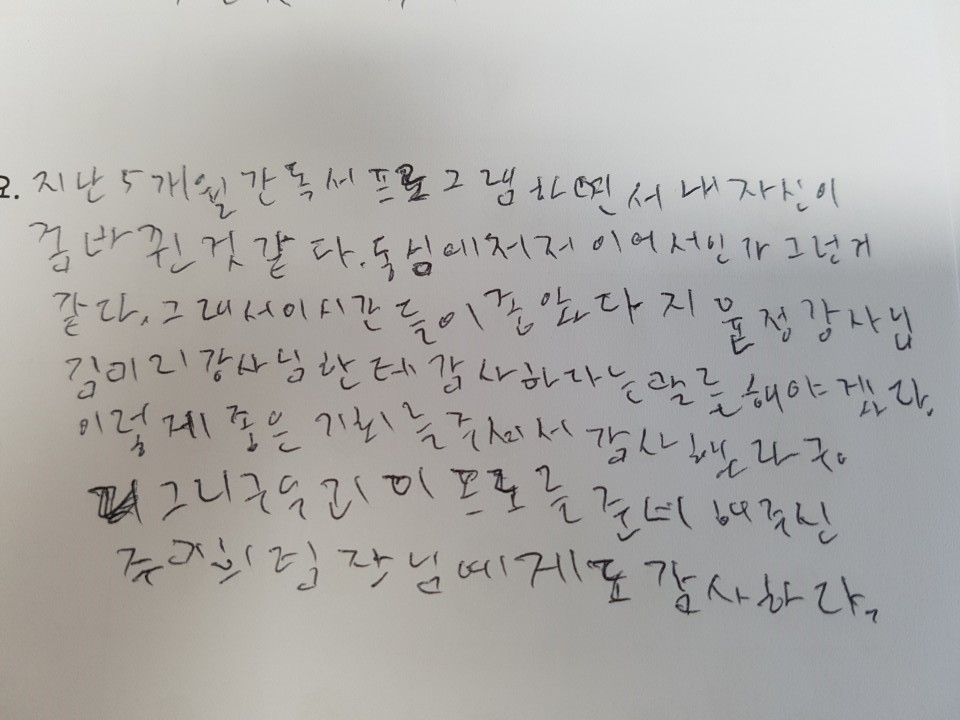 요. 지난 5개월 간 독서 프로그램 하면서 내 자신이
좀 바뀐 것 같다. 독심에저저 이어서인가 그런게
같다. 그래서 이 시간들이 좀 았다 지윤정강사님
김미리강사님 한테 감사하다는 말를 해야겠다.
이렇게 좋은 기회를 주셔서 감사했다구.
그리구 우리 이 프로를 준비해주신
팀장님에게도 감사하다.